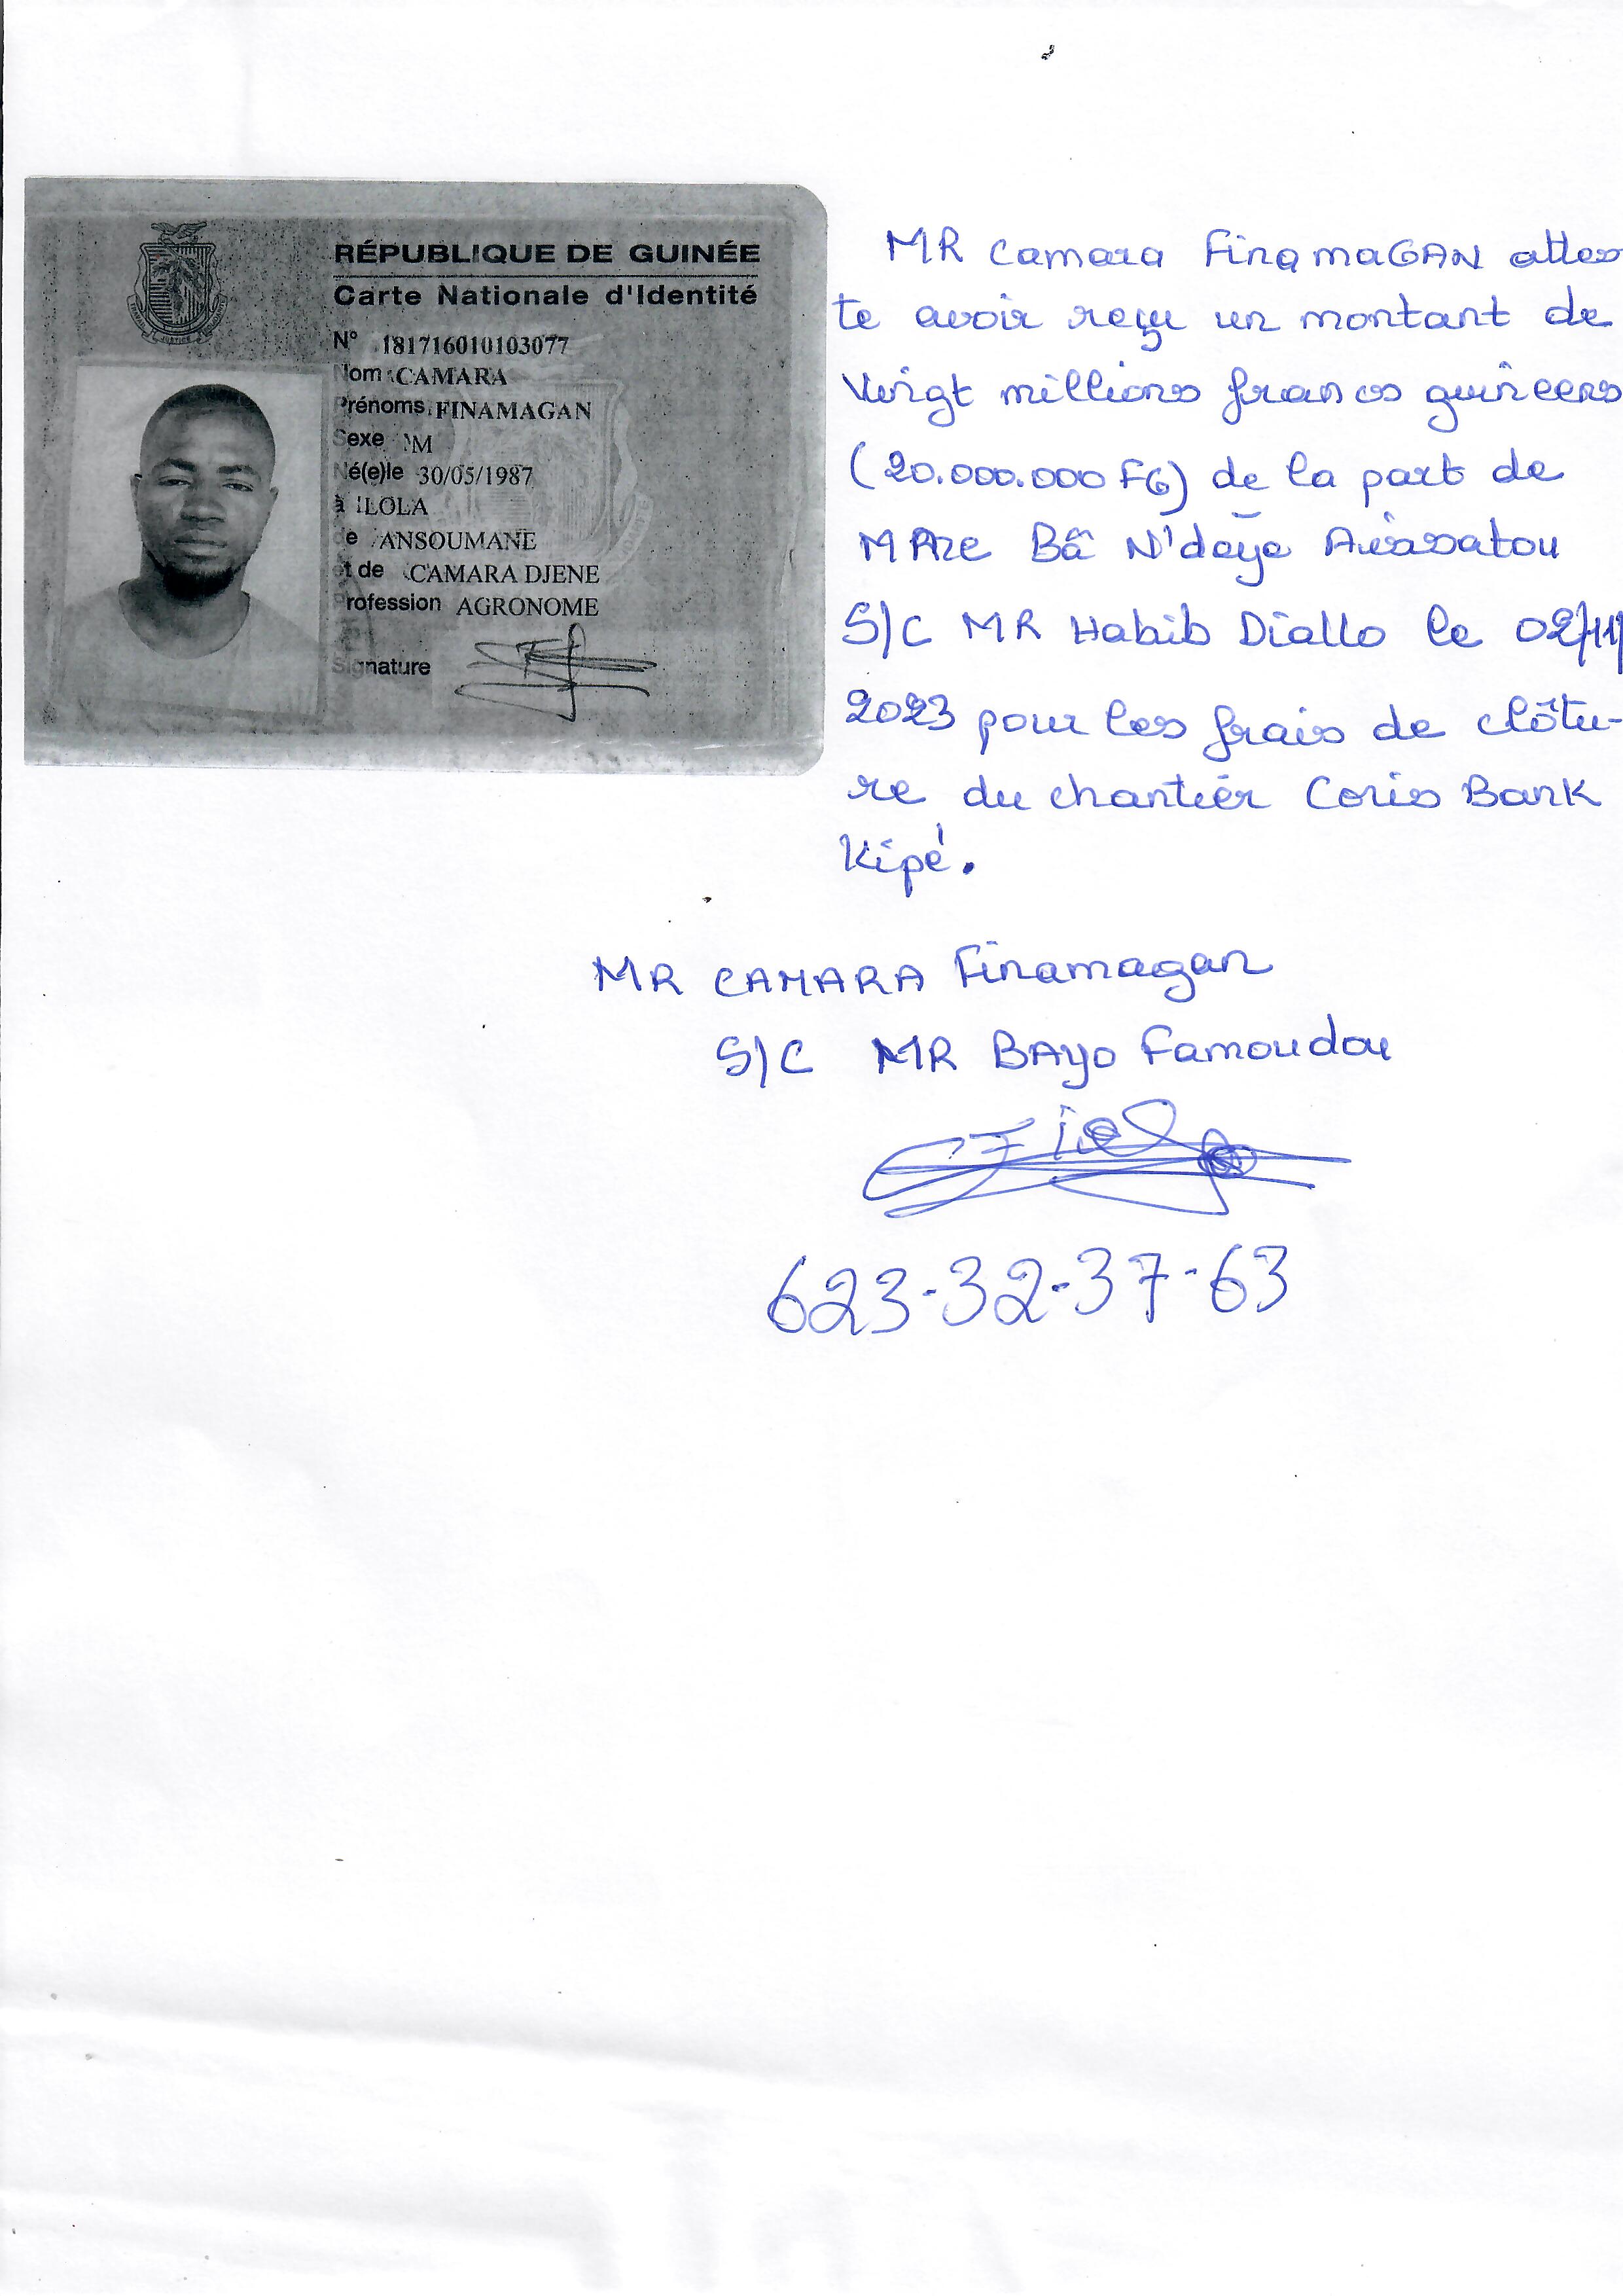 RÉPUBLIQUE DE GUINÉE
Carte Nationale d'Identité
N° 181716010103077
Nom CAMARA
Prénoms FINAMAGAN
Sexe M
Né(e)le 30/05/1987
à LOLA
de ANSOUMANE
et de CAMARA DJENE
Profession AGRONOME
Signature
MR Camara FinamaGAN attes
te avoir reçu un montant de
Vingt millions francs guinéens
(20.000.000 FG) de la part de
Bâ N'deye
S/C MR Habib Diallo le 02/11/
2023 pour les frais de clôtu-
re du chantier Coris Bank
Kipé.
MR CAMARA Finamagan
S/C MR BAYO Famoudou
623-32-37-63